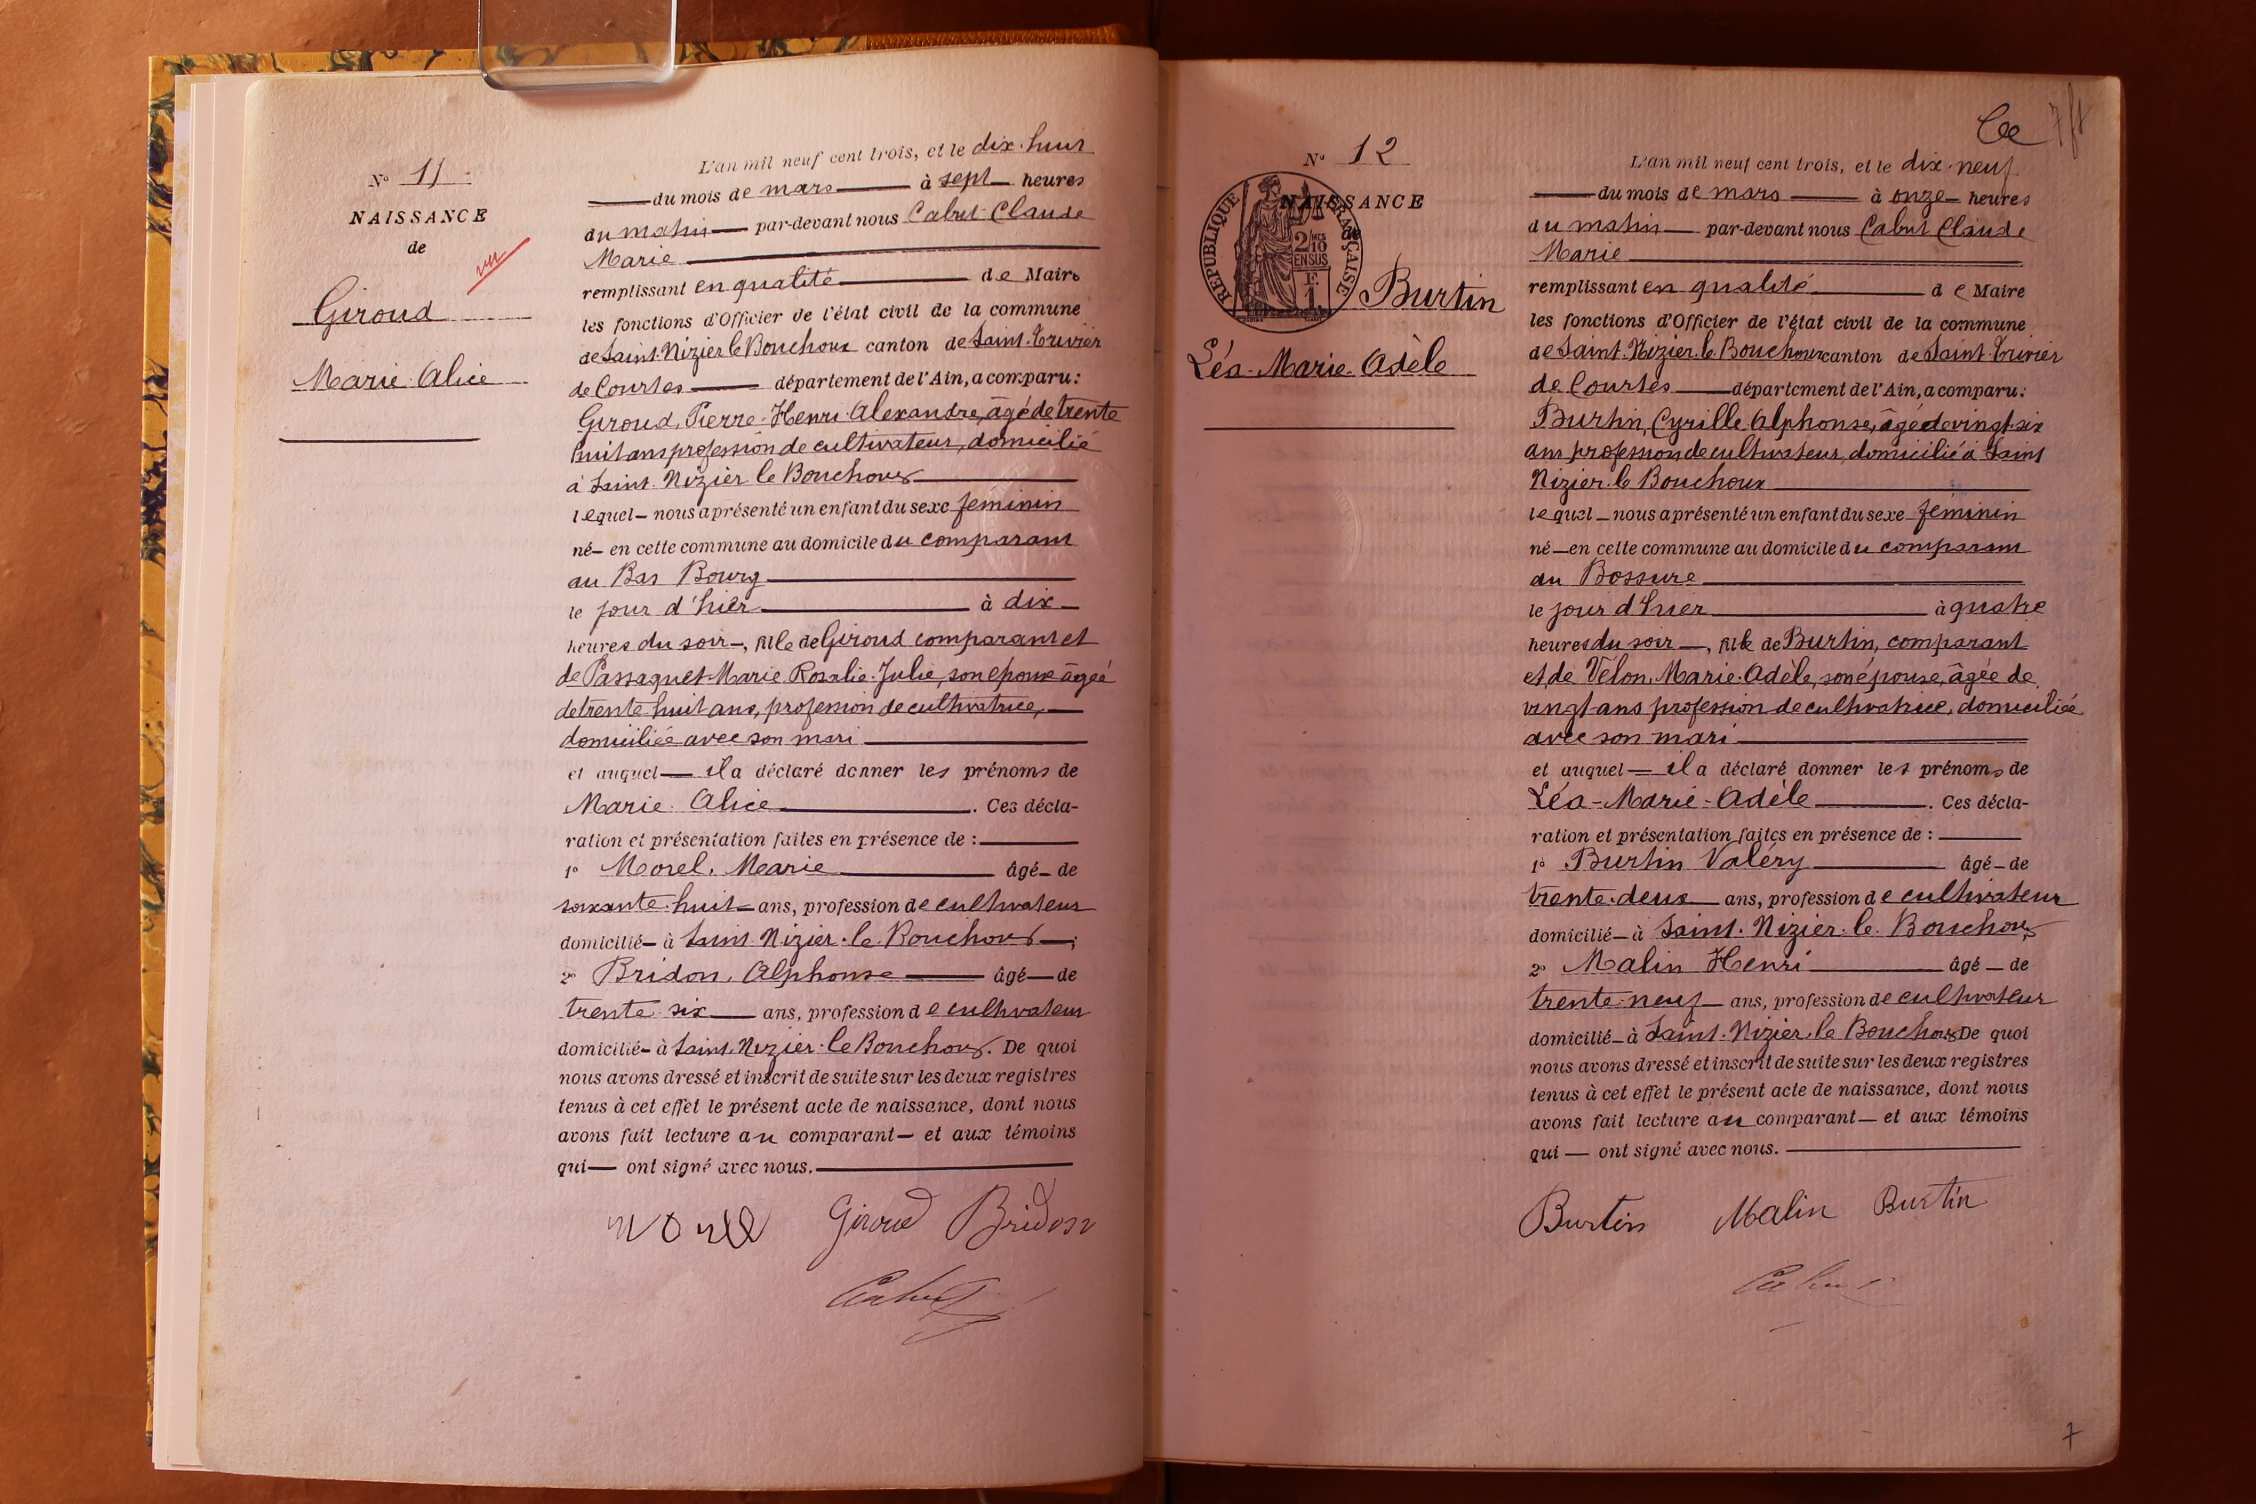 N° 11
NAISSANCE
de
vu
Giroud
Marie Alice
L'an mil neuf cent trois, et le dix-huit
du mois de mars à sept heures
du matin par-devant nous Cabut Claude
Marie
remplissant en qualité de Maire
les fonctions d'Officier de l'état civil de la commune
de Saint-Nizier le Bouchoux canton de Saint-Trivier
de Courtes département de l'Ain, a comparu:
Giroud, Pierre-Henri-Alexandre, âgé de trente
huit ans profession de cultivateur, domicilié
à Saint-Nizier le Bouchoux
lequel nous a présenté un enfant du sexe féminin
né en cette commune au domicile du comparant
au Bas Bourg
le jour d'hier à dix
heures du soir, fille de Giroud comparant et
de Passaquet Marie Rosalie Julie, son épouse âgée
de trente huit ans, profession de cultivatrice,
domiciliée avec son mari
et auquel il a déclaré donner les prénoms de
Marie Alice. Ces décla-
ration et présentation faites en présence de :
1° Morel, Marie âgé de
soixante-huit ans, profession de cultivateur
domicilié à Saint-Nizier-le-Bouchoux ;
2° Bridon, Alphonse âgé de
trente six ans, profession de cultivateur
domicilié à Saint-Nizier-le Bouchoux. De quoi
nous avons dressé et inscrit de suite sur les deux registres
tenus à cet effet le présent acte de naissance, dont nous
avons fait lecture au comparant et aux témoins
qui ont signé avec nous.
Morel Giroud Bridon
Cabut
7
N° 12
NAISSANCE
de
RÉPUBLIQUE FRANÇAISE
2/10 EN SUS
Burtin
Léa-Marie-Adèle
L'an mil neuf cent trois, et le dix-neuf
du mois de mars à onze heures
du matin par-devant nous Cabut Claude
Marie
remplissant en qualité de Maire
les fonctions d'Officier de l'état civil de la commune
de Saint-Nizier-le Bouchoux canton de Saint Trivier
de Courtes département de l'Ain, a comparu:
Burtin, Cyrille-Alphonse, âgé de vingt-six
ans profession de cultivateur, domicilié à Saint
Nizier-le Bouchoux
lequel nous a présenté un enfant du sexe féminin
né en cette commune au domicile du comparant
au Bossure
le jour d'hier à quatre
heures du soir, fille de Burtin, comparant
et de Vélon, Marie-Adèle, son épouse, âgée de
vingt ans profession de cultivatrice, domiciliée
avec son mari
et auquel il a déclaré donner les prénoms de
Léa-Marie-Adèle. Ces décla-
ration et présentation faites en présence de :
1° Burtin Valéry âgé de
trente-deux ans, profession de cultivateur
domicilié à Saint-Nizier-le-Bouchoux
2° Malin Henri âgé de
trente-neuf ans, profession de cultivateur
domicilié à Saint-Nizier-le Bouchoux De quoi
nous avons dressé et inscrit de suite sur les deux registres
tenus à cet effet le présent acte de naissance, dont nous
avons fait lecture au comparant et aux témoins
qui ont signé avec nous.
Burtin Malin Burtin
Cabut
7